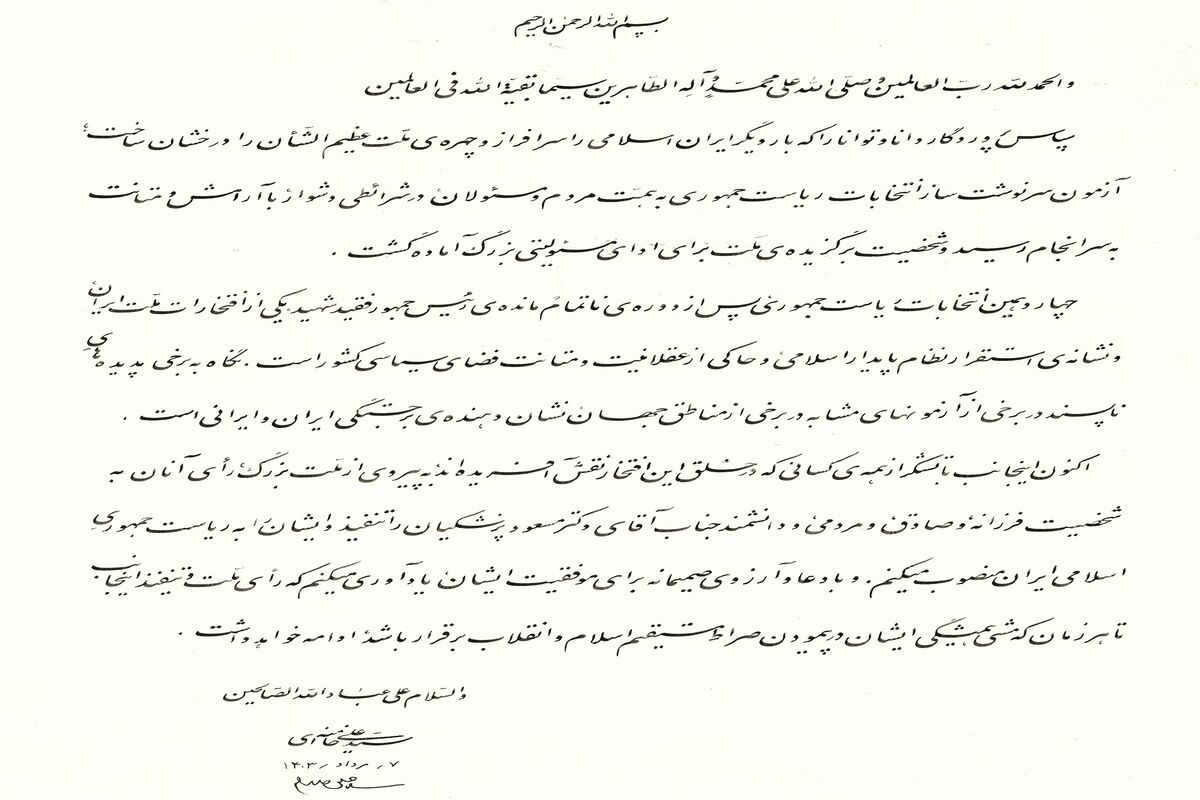 بسم الله الرحمن الرحیم
و الحمد لله رب العالمین و صلی الله علی محمد و آله الطاهرین سیما بقیة الله فی العالمین
سپاس پروردگار دانا و توانا را که بار دیگر ایران اسلامی را سرافراز و چهره‌ی ملت عظیم الشأن را درخشان ساخت؛
آزمون سرنوشت ساز انتخابات ریاست جمهوری به همّت مردم و مسئولان در شرائطی دشوار با آرامش و متانت
به سرانجام رسید و شخصیت برگزیده‌ی ملّت برای ادای مسئولیتی بزرگ آماده گشت.
چهاردهمین انتخابات ریاست جمهوری پس از دوره‌ی ناتمام مانده‌ی رئیس جمهور فقید شهید، یکی از افتخارات ملت ایران
و نشانه‌ی استقرار نظام پایدار اسلامی و حاکی از عقلانیت و متانت فضای سیاسی کشور است. نگاه به برخی پدیده‌های
ناپسند در برخی از آزمونهای مشابه در برخی از مناطق جهان نشان دهنده‌ی برجستگی ایران و ایرانی است.
اکنون اینجانب با تشکر از همه‌ی کسانی که در خلق این افتخار نقش آفریده‌اند به پیروی از ملّت بزرگ رأی آنان به
شخصیت فرزانه و صادق و مردمی و دانشمند جناب آقای دکتر مسعود پزشکیان را تنفیذ و ایشان را به ریاست جمهوری
اسلامی ایران منصوب میکنم. و با دعا و آرزوی صمیمانه برای موفقیت ایشان یادآوری میکنم که رأی ملّت و تنفیذ اینجانب
تا هر زمان که مشی همیشگی ایشان در پیمودن صراط مستقیم اسلام و انقلاب برقرار باشد ادامه خواهد داشت.
والسّلام علی عباد الله الصالحین
سیّد علی خامنه‌ای
۷ر مرداد ر ۱۴۰۳